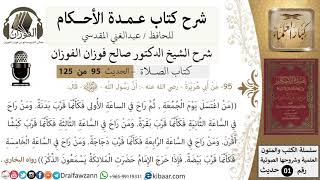 شرح كتاب عمدة الأحكام
للحافظ / عبدالغني المقدسي
شرح الشيخ الدكتور صالح فوزان الفوزان
كتاب الصلاة - الحديث 95 من 125
95- عَنْ أَبِي هُرَيْرَةَ - رضي الله عنه - أَنَّ رَسُولَ اللَّهِ - ﷺ - قَالَ:
((مَنْ اغْتَسَلَ يَوْمَ الْجُمُعَةِ , ثُمَّ رَاحَ فِي السَّاعَةِ الْأُولَى فَكَأَنَّمَا قَرَّبَ بَدَنَةً. وَمَنْ رَاحَ
فِي السَّاعَةِ الثَّانِيَةِ فَكَأَنَّمَا قَرَّبَ بَقَرَةً، وَمَنْ رَاحَ فِي السَّاعَةِ الثَّالِثَةِ فَكَأَنَّمَا قَرَّبَ كَبْشًا
وَمَنْ رَاحَ فِي السَّاعَةِ الرَّابِعَةِ فَكَأَنَّمَا قَرَّبَ دَجَاجَةً، وَمَنْ رَاحَ فِي السَّاعَةِ الْخَامِسَةِ
فَكَأَنَّمَا قَرَّبَ بَيْضَةً. فَإِذَا خَرَجَ الْإِمَامُ حَضَرَتِ الْمَلَائِكَةُ يَسْتَمِعُونَ الذِّكْرَ)) رواه البخاري.
الفوزان
كبار العلماء
سلسلة الكتب والمتون
العلمية وشروحها الصوتية
رقم 01 حديث
Dralfawzann
+965-99119311
kibaar.com